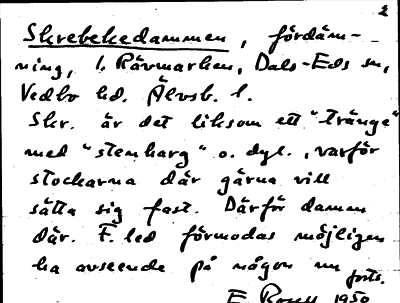 2
Skrebekedammen, fördäm-
ning, l. Rävmarken, Dals-Eds sn,
Vedbo hd. Älvsb. l.
Skr. är det liksom ett "trånge"
med "stenharg" o. dyl., varför
stockarna där gärna vill
sätta sig fast. Därför dammen
där. F. led förmodas möjligen
ha avseende på någon nu forts.
E. 1950